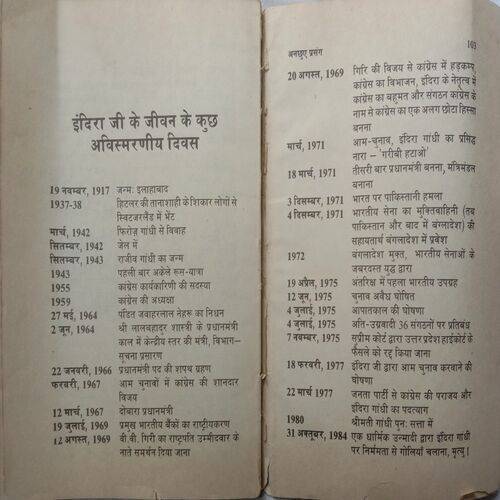 इंदिरा जी के जीवन के कुछ
अविस्मरणीय दिवस
19 नवम्बर, 1917 जन्म: इलाहाबाद
1937-38 हिटलर की तानाशाही के शिकार लोगों से
स्विटजरलैंड में भेंट
मार्च, 1942 फिरोज़ गांधी से विवाह
सितम्बर, 1942 जेल में
सितम्बर, 1943 राजीव गांधी का जन्म
1943 पहली बार अकेले रूस-यात्रा
1955 कांग्रेस कार्यकारिणी की सदस्या
1959 कांग्रेस की अध्यक्षा
27 मई, 1964 पंडित जवाहरलाल नेहरू का निधन
2 जून, 1964 श्री लालबहादुर शास्त्री के प्रधानमंत्री
काल में केन्द्रीय स्तर की मंत्री, विभाग—
सूचना प्रसारण
22 जनवरी, 1966 प्रधानमंत्री पद की शपथ ग्रहण
फरवरी, 1967 आम चुनावों में कांग्रेस की शानदार
विजय
12 मार्च, 1967 दोबारा प्रधानमंत्री
19 जुलाई, 1969 प्रमुख भारतीय बैंकों का राष्ट्रीयकरण
12 अगस्त, 1969 वी.वी. गिरी का राष्ट्रपति उम्मीदवार के
नाते समर्थन दिया जाना
अनछुए प्रसंग 103
20 अगस्त, 1969 गिरि की विजय से कांग्रेस में हड़कम्प,
कांग्रेस का विभाजन, इंदिरा के नेतृत्व में
कांग्रेस का बहुमत और संगठन कांग्रेस के
नाम से कांग्रेस का एक अलग छोटा हिस्सा
बनना
मार्च, 1971 आम-चुनाव, इंदिरा गांधी का प्रसिद्ध
नारा – 'गरीबी हटाओ'
18 मार्च, 1971 तीसरी बार प्रधानमंत्री बनना, मंत्रिमंडल
बनाना
3 दिसम्बर, 1971 भारत पर पाकिस्तानी हमला
4 दिसम्बर, 1971 भारतीय सेना का मुक्तिवाहिनी (तब
पाकिस्तान और बाद में बंग्लादेश) की
सहायतार्थ बंगलादेश में प्रवेश
1972 बंगलादेश मुक्त, भारतीय सेनाओं के
जबरदस्त युद्ध द्वारा
19 अप्रैल, 1975 अंतरिक्ष में पहला भारतीय उपग्रह
12 जून, 1975 चुनाव अवैध घोषित
4 जुलाई, 1975 आपातकाल की घोषणा
4 जुलाई, 1975 अति-उग्रवादी 36 संगठनों पर प्रतिबंध
7 नवम्बर, 1975 सुप्रीम कोर्ट द्वारा उत्तर प्रदेश हाईकोर्ट के
फैसले को रद्द किया जाना
18 फरवरी, 1977 इंदिरा जी द्वारा आम चुनाव करवाने की
घोषणा
22 मार्च 1977 जनता पार्टी से कांग्रेस की पराजय और
इंदिरा गांधी का पदत्याग
1980 श्रीमती गांधी पुन: सत्ता में
31 अक्तूबर, 1984 एक धार्मिक उन्मादी द्वारा इंदिरा गांधी
पर निर्ममता से गोलियाँ चलाना, मृत्यु।